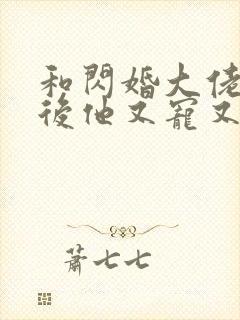 和閃婚大佬
後他又寵又
蕭七七